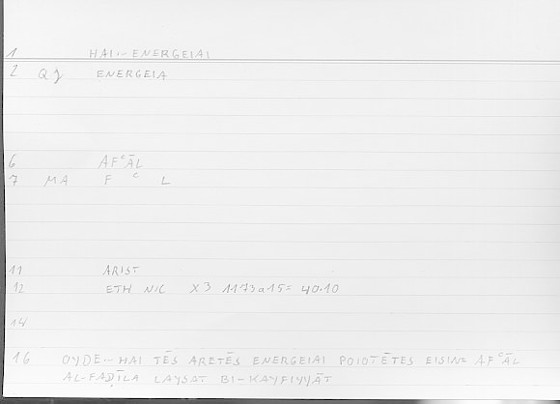 1 HAI-- ENERGEIAI
2 QJ ENERGEIA
6 AFᶜĀL
7 MA F ᶜ L
11 ARIST
12 ETH NIC X3 1173a15= 40.10
14
16 OYDE-- HAI TĒS ARETĒS ENERGEIAI POIOTĒTES EISIN= AFᶜĀL
AL-FAḌĪLA LAYSAT BI-KAYFIYYĀT